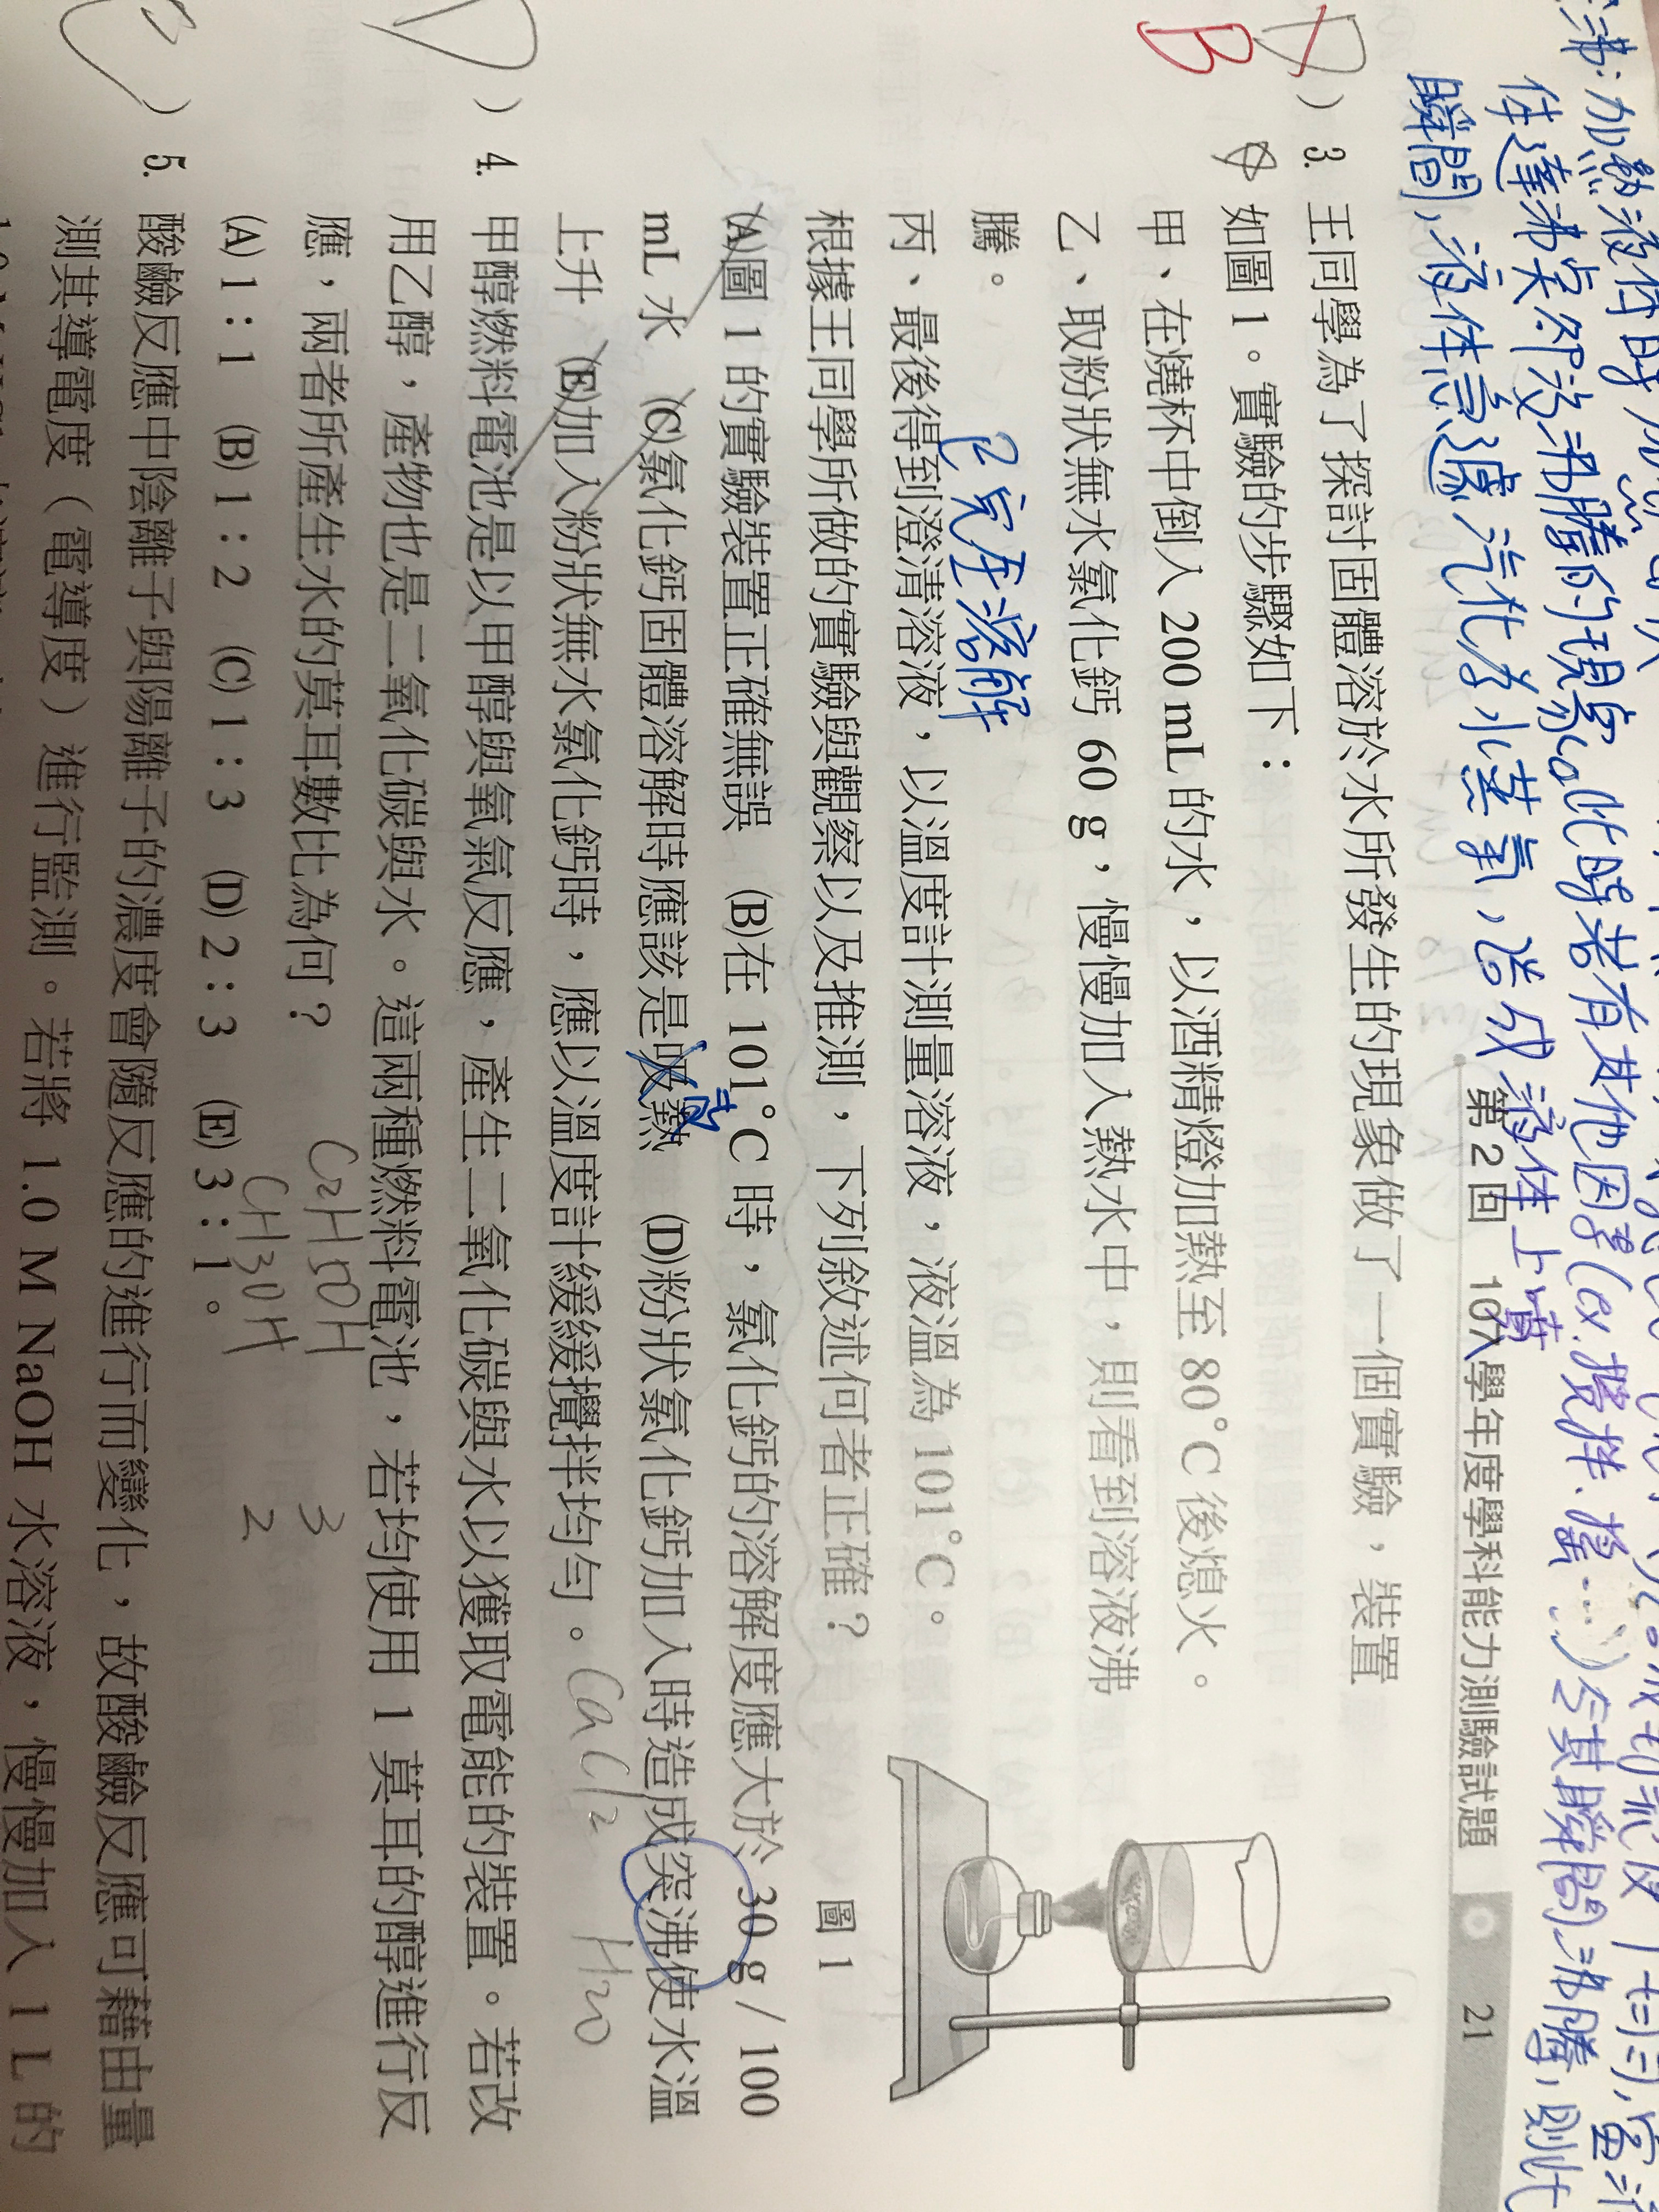 加熱液体時
体達沸點卻沒沸騰的現象。此時若有其他因素(ex.攪拌、搖…)令其瞬間沸騰，則此
瞬間，液体急遽汽化為水蒸氣，造成液体上噴
第2回 107學年度學科能力測驗試題 21
B )3. 王同學為了探討固體溶於水所發生的現象做了一個實驗，裝置
如圖1。實驗的步驟如下：
甲、在燒杯中倒入200 mL的水，以酒精燈加熱至80°C後熄火。
乙、取粉狀無水氯化鈣60 g，慢慢加入熱水中，則看到溶液沸
騰。
已完全溶解
丙、最後得到澄清溶液，以溫度計測量溶液，液溫為101°C。
圖1
根據王同學所做的實驗與觀察以及推測，下列敘述何者正確？
(A)圖1的實驗裝置正確無誤 (B)在101°C時，氯化鈣的溶解度應大於30 g / 100
mL水 (C)氯化鈣固體溶解時應該是吸熱 (D)粉狀氯化鈣加入時造成突沸使水溫
放
上升 (E)加入粉狀無水氯化鈣時，應以溫度計緩緩攪拌均勻。
CaCl2 H2O
D )4. 甲醇燃料電池是以甲醇與氧氣反應，產生二氧化碳與水以獲取電能的裝置。若改
用乙醇，產物也是二氧化碳與水。這兩種燃料電池，若均使用1莫耳的醇進行反
應，兩者所產生水的莫耳數比為何？
C2H5OH 3
(A) 1：1 (B) 1：2 (C) 1：3 (D) 2：3 (E) 3：1。
CH3OH 2
)5. 酸鹼反應中陰離子與陽離子的濃度會隨反應的進行而變化，故酸鹼反應可藉由量
測其導電度（電導度）進行監測。若將1.0 M NaOH水溶液，慢慢加入1 L的